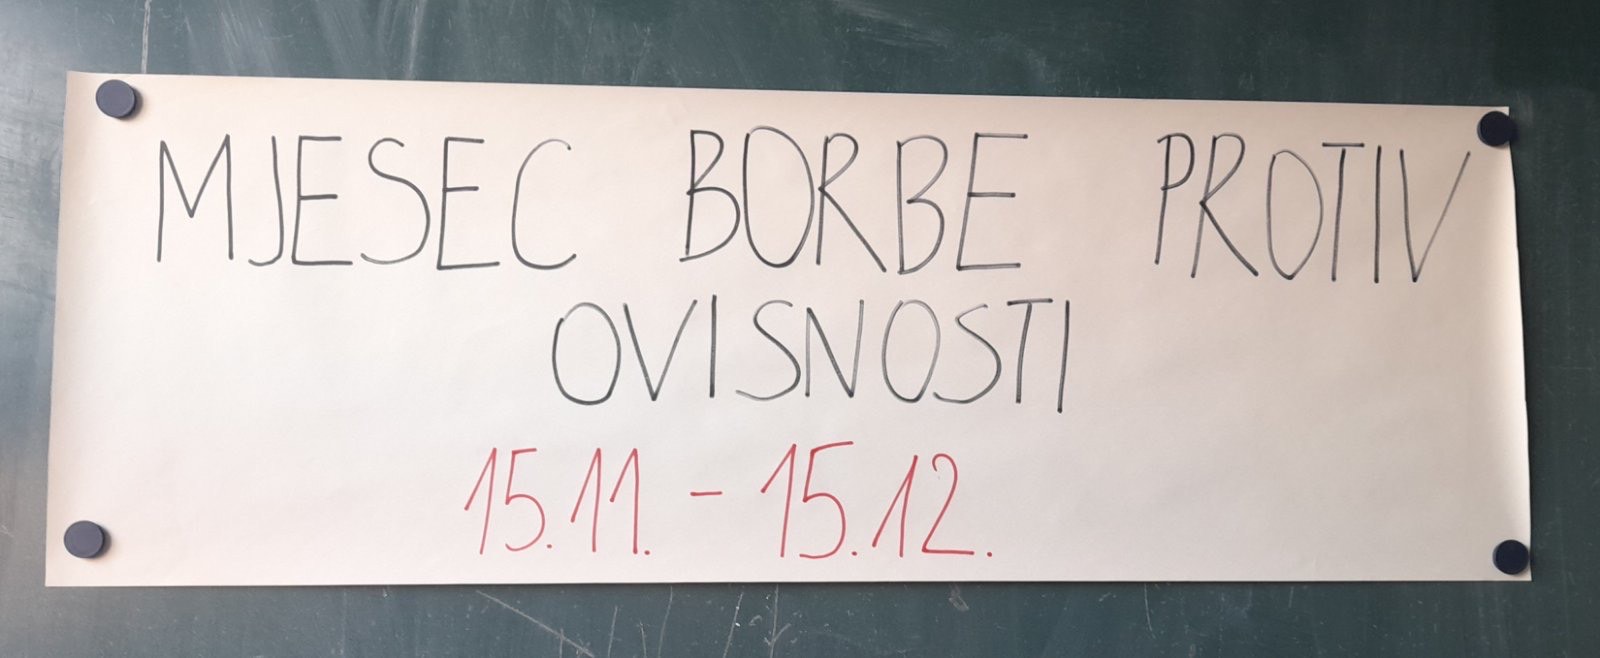 MJESEC BORBE PROTIV
OVISNOSTI
15.11. - 15.12.